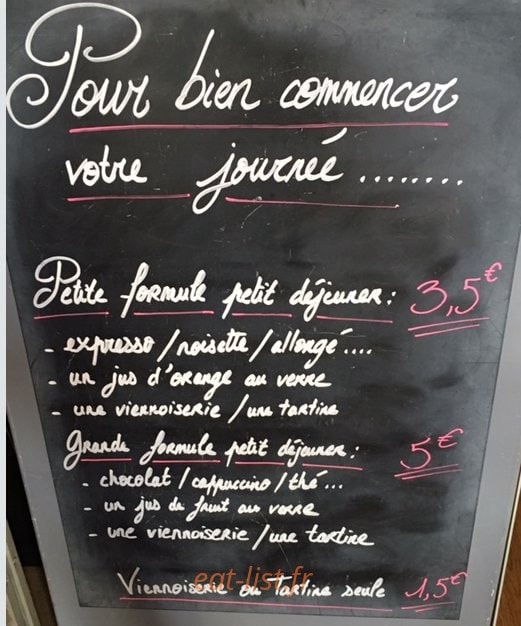 Pour bien commencer
votre journée ........
Petite formule petit déjeuner : 3,5€
- expresso / noisette / allongé ....
- un jus d'orange au verre
- une viennoiserie / une tartine
Grande formule petit déjeuner : 5€
- chocolat / cappuccino / thé ...
- un jus de fruit au verre
- une viennoiserie / une tartine
Viennoiserie ou Tartine seule 1,5€
eat-list.fr